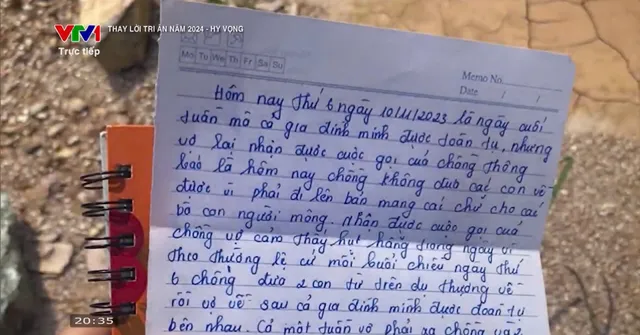 VTV1 THAY LỜI TRI ÂN NĂM 2024 - HY VỌNG
Trực tiếp
Mo Tu We Th Fr Sa Su
Memo No.
Date / /
Hôm nay thứ 6 ngày 10/11/2023 là ngày cuối
tuần mà cả gia đình mình được đoàn tụ, nhưng
vợ lại nhận được cuộc gọi của chồng thông
báo là hôm nay chồng không đưa các con về
được vì phải đi lên bản mang cái chữ cho các
bà con người mông. Nhận được cuộc gọi của
chồng vợ cảm thấy hụt hẫng trong ngày vì
theo thường lệ cứ mỗi buổi chiều ngày thứ
6 chồng đưa 2 con từ trên du thượng về
rồi vợ về sau cả gia đình mình được đoàn tụ
bên nhau. Cả một tuần vợ phải xa chồng và 2
20:35